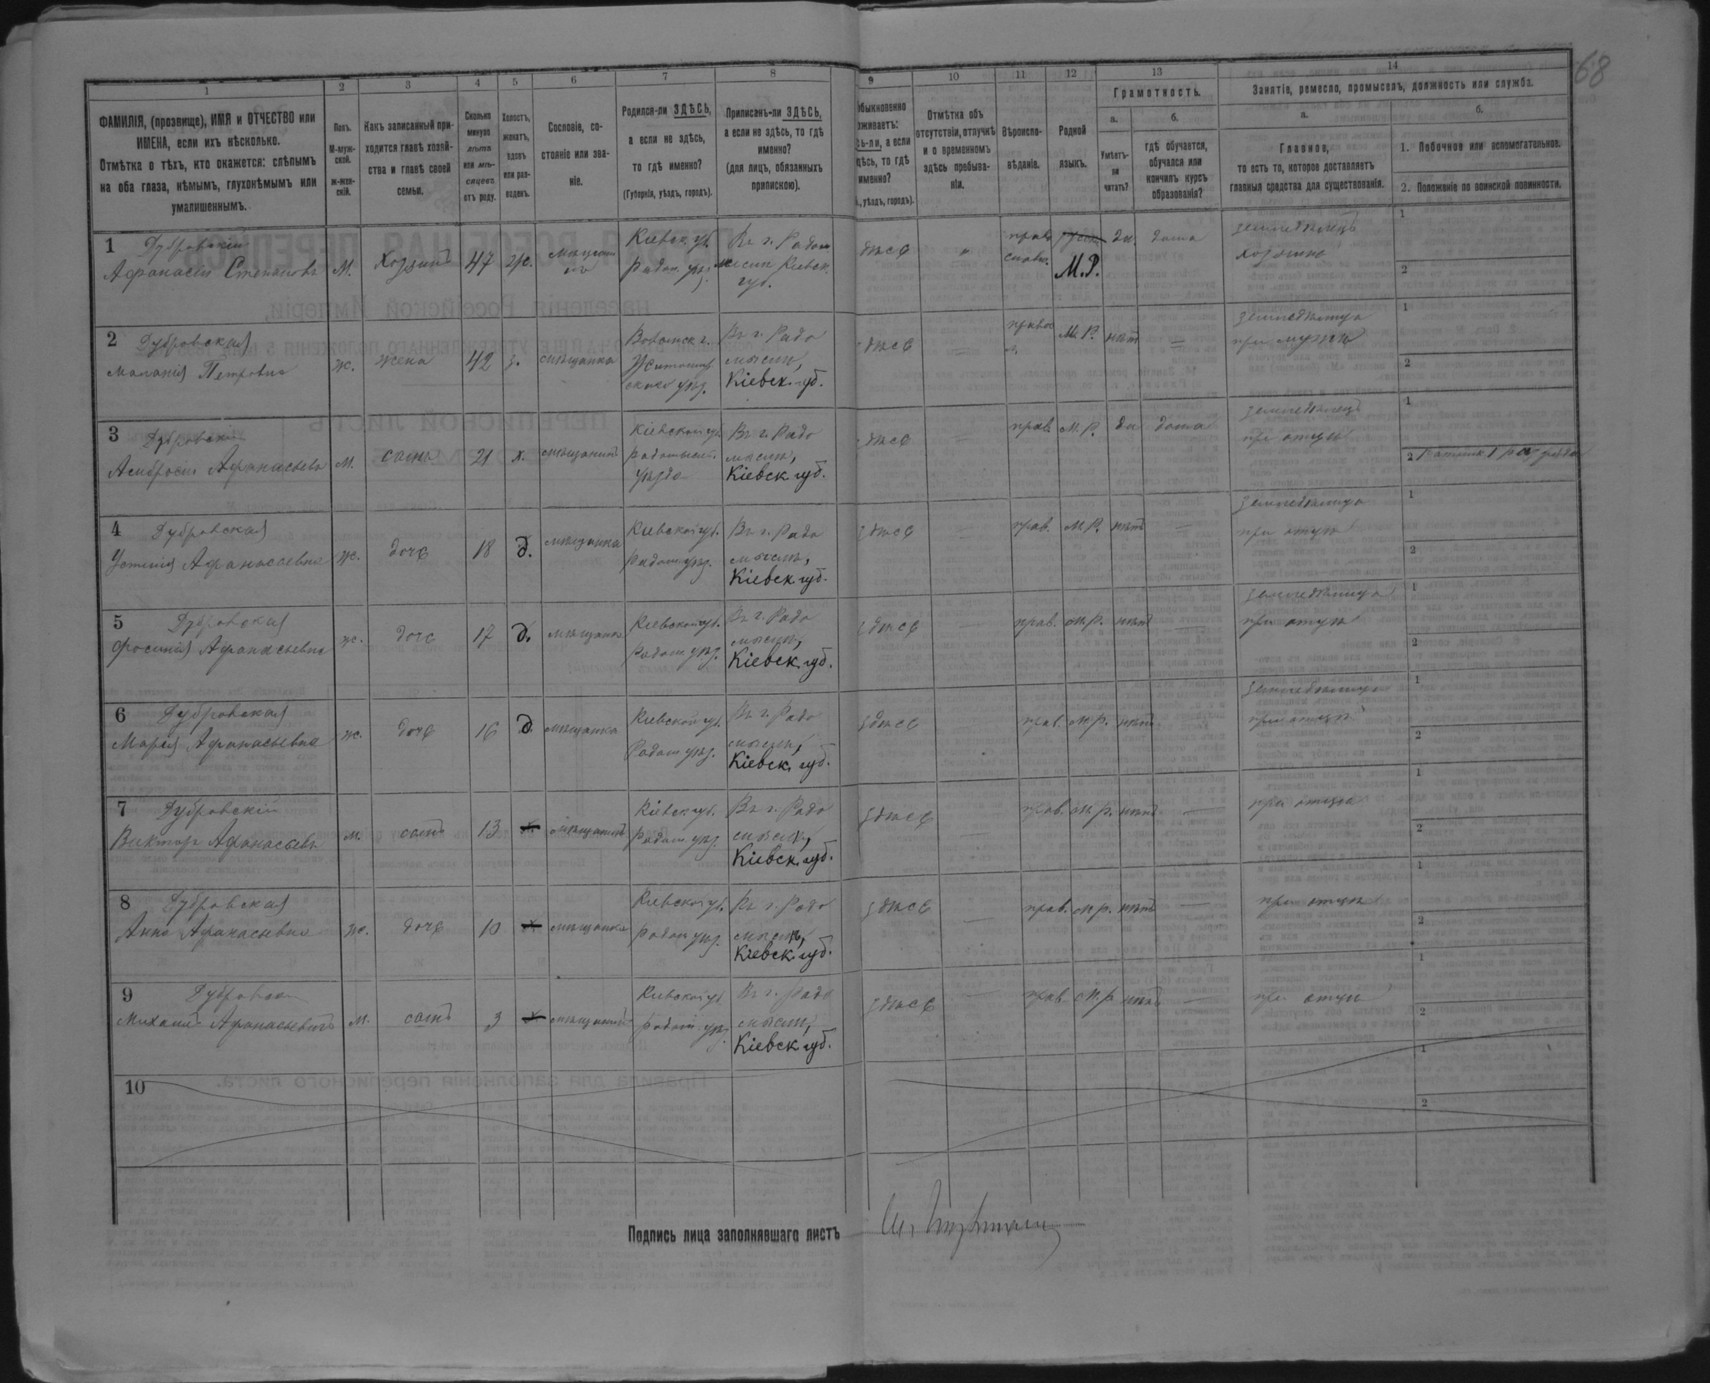 68
1 2 3 4 5 6 7 8 9 10 11 12 13 14
ФАМИЛІЯ, (прозвище), ИМЯ и ОТЧЕСТВО или
ИМЕНА, если ихъ нѣсколько.
Отмѣтка о тѣхъ, кто окажется: слѣпымъ
на оба глаза, нѣмымъ, глухонѣмымъ или
умалишеннымъ.
Полъ.
М-муж-
ской.
Ж-жен-
скій.
Какъ записанный при-
ходится главѣ хозяй-
ства и главѣ своей
семьи.
Сколько
минуло
лѣтъ
или мѣ-
сяцевъ
отъ роду.
Холостъ,
женатъ,
вдовъ
или раз-
веденъ.
Сословіе, со-
стояніе или зва-
ніе.
Родился-ли ЗДѢСЬ,
а если не здѣсь,
то гдѣ именно?
(Губернія, уѣздъ, городъ).
Приписанъ-ли ЗДѢСЬ,
а если не здѣсь, то гдѣ
именно?
(для лицъ, обязанныхъ
припискою).
быкновенно
живаетъ:
сь-ли, а если
дѣсь, то гдѣ
именно?
., уѣздъ, городъ).
Отмѣтка объ
отсутствіи, отлучкѣ
и о временномъ
здѣсь пребыва-
ніи.
Вѣроиспо-
вѣданіе.
Родной
языкъ.
Грамотность.
а.
Умѣетъ-
ли
читать?
б.
гдѣ обучается,
обучался или
кончилъ курсъ
образованія?
Занятіе, ремесло, промыселъ, должность или служба.
а.
Главное,
то есть то, которое доставляетъ
главныя средства для существованія.
б.
1. Побочное или вспомогательное.
2. Положеніе по воинской повинности.
1 Дубровскій
Афанасій Степановъ М. Хозяинъ 47 ж.
Кіевск. губ.
Радом. уѣз.
Въ г. Радо
мыслѣ Кіевск.
губ.
здѣсь
право
славн.
М.Р.
да
дома
земледѣлецъ
хозяинъ
1
2
2 Дубровская
Маланія Петровна ж. жена 42 з. мѣщанка
Въ г. Радо
мыслѣ,
Кіевск. губ.
здѣсь — М.Р. нѣтъ —
земледѣлица
при мужѣ
1
2
3 Дубровскій
Амвросій Афанасьевъ М. сынъ 21 х. мѣщанинъ
Кіевской губ.
Радомысл.
уѣзда
Въ г. Радо
мыслѣ,
Кіевск губ.
здѣсь — прав. М.Р. да дома
земледѣлецъ
при отцѣ
1
2
4 Дубровская
Устинія Афанасьевна ж. дочь 18 д. мѣщанка
Кіевской губ.
Радом. уѣз.
Въ г. Радо
мыслѣ,
Кіевск губ.
здѣсь — прав. М.Р. нѣтъ —
земледѣлица
при отцѣ
1
2
5 Дубровская
Фросинія Афанасьевна ж. дочь 17 д. мѣщанка
Кіевской губ.
Радом уѣз.
Въ г. Радо
мыслѣ,
Кіевск. губ.
здѣсь — прав. М.Р. нѣтъ —
земледѣлица
при отцѣ
1
2
6 Дубровская
Марія Афанасьевна ж. дочь 16 д мѣщанка
Кіевской губ.
Радом уѣз.
Въ г. Радо
мыслѣ,
Кіевск. губ.
здѣсь прав. М.Р. нѣтъ
земледѣлица
при отцѣ
1
2
7 Дубровскій
Викторъ Афанасьевъ м. сынъ 13 мѣщанинъ
Кіевск. губ.
Радом уѣз.
Въ г. Радо
мыслѣ,
Кіевск. губ.
здѣсь прав. М.Р. нѣтъ —
при отцѣ
1
2
8 Дубровская
Анна Афанасьевна ж. дочь 10 мѣщанка
Кіевской губ.
Радом уѣз.
Въ г. Радо
мыслѣ,
Кіевск. губ.
здѣсь — прав. М.Р. нѣтъ —
при отцѣ
1
2
9
Михаилъ Афанасьевъ М. сынъ 3 мѣщанинъ
Кіевской губ
Радом. уѣз.
Въ г. Радо
мыслѣ,
Кіевск губ.
здѣсь — прав. М.Р. нѣтъ —
при отцѣ
1
2
10
1
2
Подпись лица заполнявшаго листъ